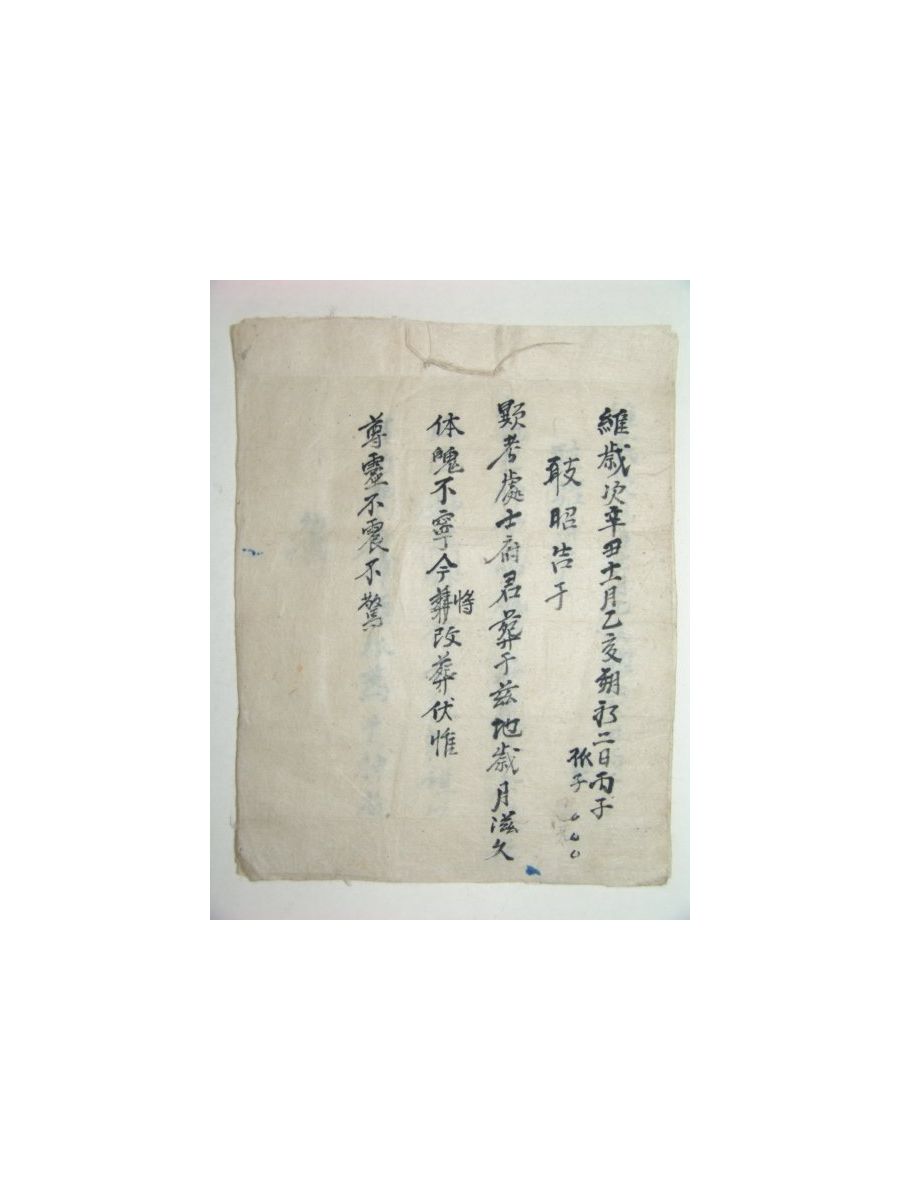 維歲次辛丑十一月乙亥朔初二日丙子
孤子
敢昭告于
顯考處士府君葬于兹地歲月滋久
体魄不寧今將改葬伏惟
尊靈不震不驚